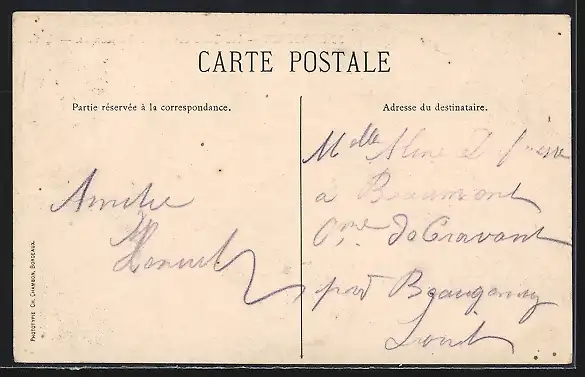 CARTE POSTALE
Partie réservée à la correspondance.
Adresse du destinataire.
Melle Aline
à Beaumont
Cne de Cravant
par Beaugency
Loiret
PHOTOTYPIE CH. CHAMBON, BORDEAUX.